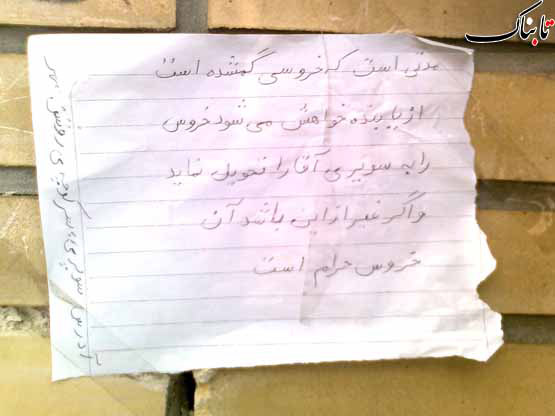 تابناک
مدتی است که خروسی گمشده است
از یابنده خواهش می شود خروس
را به سوپری آقارا تحویل نماید
و اگر غیر از این باشد آن
خروس حرام است
آدرس سوپری